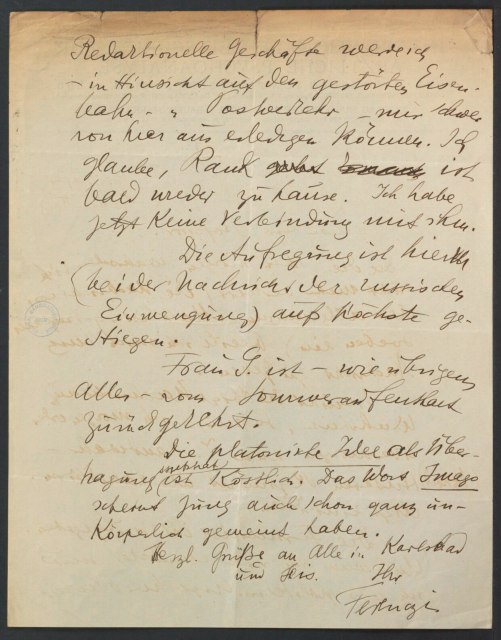 Redaktionelle Geschäfte werde ich
- in Hinsicht auf den gestörten Eisen-
bahn- u Postverkehr - nur schwer
von hier aus erledigen können. Ich
glaube, Rank ist
bald wieder zu hause. Ich habe
jetzt keine Verbindung mit ihm.
Die Aufregung ist hier
(bei der Nachricht der russischen
Einmengung) aufs höchste ge-
stiegen.
Frau G. ist - wie übrigens
Alles - vom Sommeraufenthalt
zurückgekehrt.
Die platonische Idee als Über-
tragung ist köstlich. Das Wort Imago
scheint Jung auch schon ganz un-
körperlich gemeint haben.
Herzl. Grüße an Alle in Karlsbad
und Ihr
Ferenczi